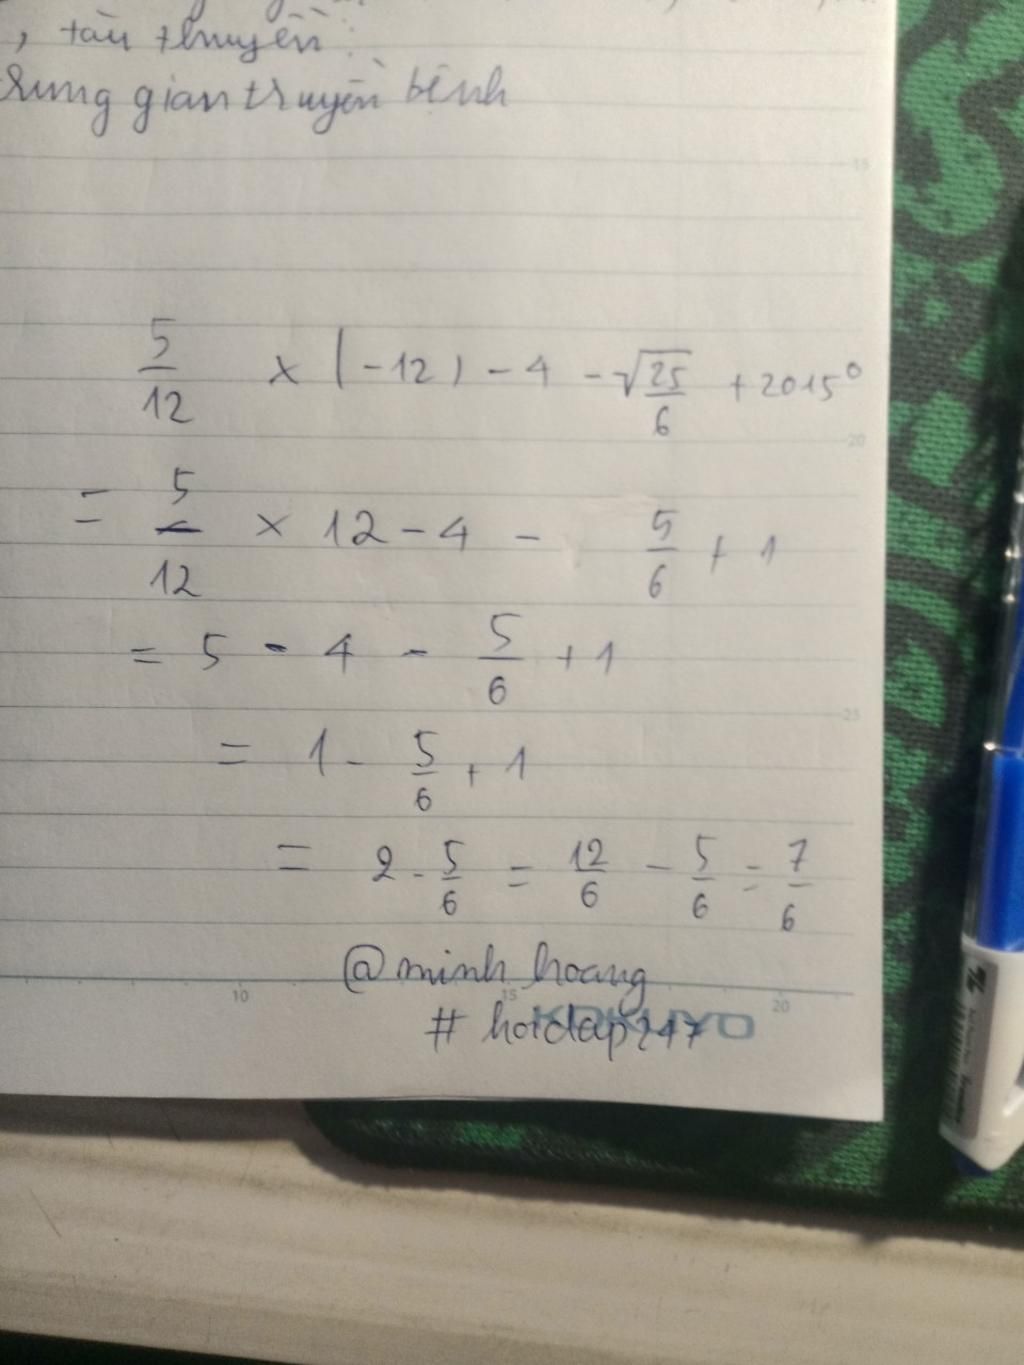 , tàu thuyền
trung gian truyền bệnh
15
5/12 x |-12) - 4 - √25/6 + 2015⁰
20
= 5/12 x 12 - 4 - 5/6 + 1
= 5 - 4 - 5/6 + 1
25
= 1 - 5/6 + 1
= 2 - 5/6 = 12/6 - 5/6 = 7/6
@minh hoang
10 15 20
# hoidap247
KOKUYO